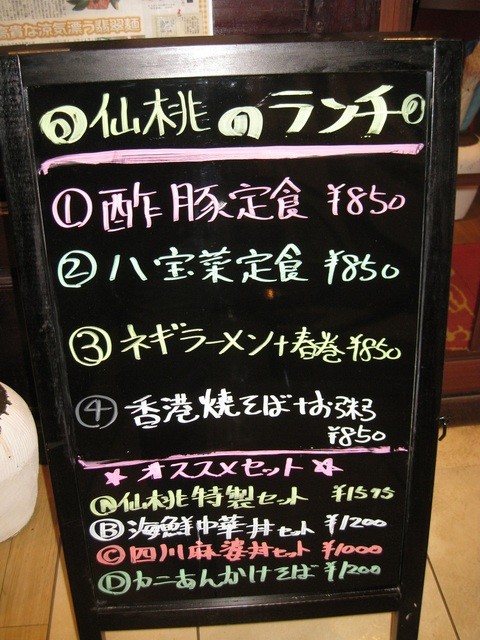 高貴な涼気漂う翡翠麺
仙桃のランチ
①酢豚定食 ¥850
②八宝菜定食 ¥850
③ネギラーメン+春巻 ¥850
④香港焼そば+お粥
¥850
☆オススメセット☆
Ⓐ仙桃特製セット ¥1575
Ⓑ海鮮中華丼セット ¥1200
Ⓒ四川麻婆丼セット ¥1000
Ⓓカニあんかけそば ¥1200